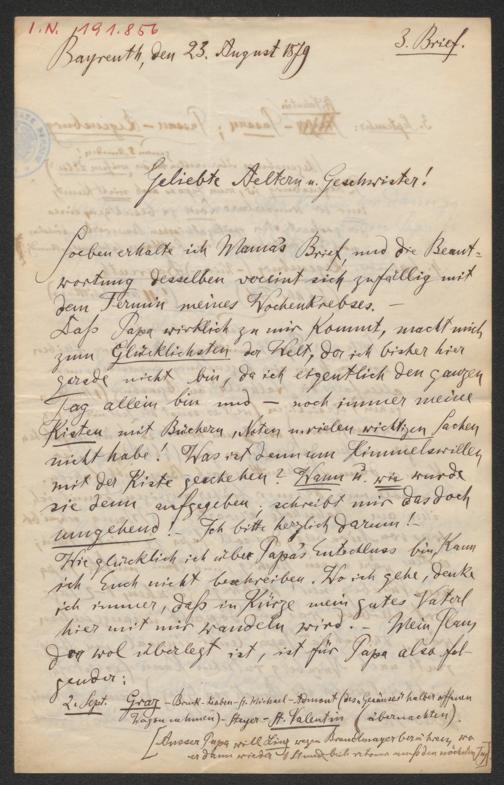 I.N. 191.856
Bayreuth, den 23. August 1879
3. Brief.
Geliebte Aeltern u. Geschwister!
Soeben erhalte ich Mama's Brief, und die Beant-
wortung desselben vereint sich zufällig mit
dem Termin meines Wochenkrebses. —
Daß Papa wirklich zu mir kommt, macht mich
zum Glücklichsten der Welt, der ich bisher hier
gerade nicht bin, da ich eigentlich den ganzen
Tag allein bin und — noch immer meine
Kisten mit Büchern, Noten u. vielen wichtigen Sachen
nicht habe! Was ist denn um Himmelswillen
mit der Kiste geschehen? Wann u. wie wurde
sie denn aufgegeben, schreibt mir das doch
umgehend! — Ich bitte herzlich darum! —
Wie glücklich ich über Papa's Entschluss bin, kann
ich Euch nicht beschreiben. Wo ich gehe, denke
ich immer, daß in Kürze mein gutes Vaterl
hier mit mir wandeln wird. — Mein Plan,
der wol überlegt ist, ist für Papa also fol-
gender:
2. Sept. Graz – Bruck – Leoben – St. Michael – Admont (des "Gesäuses" halber offenen
Wagen nehmen) – Steyer – St. Valentin (übernachten).
[Ausser Papa will Linz wegen Brandmayer berühren, wo
er dann wieder 4 Stund retour muß den nächsten Tag]